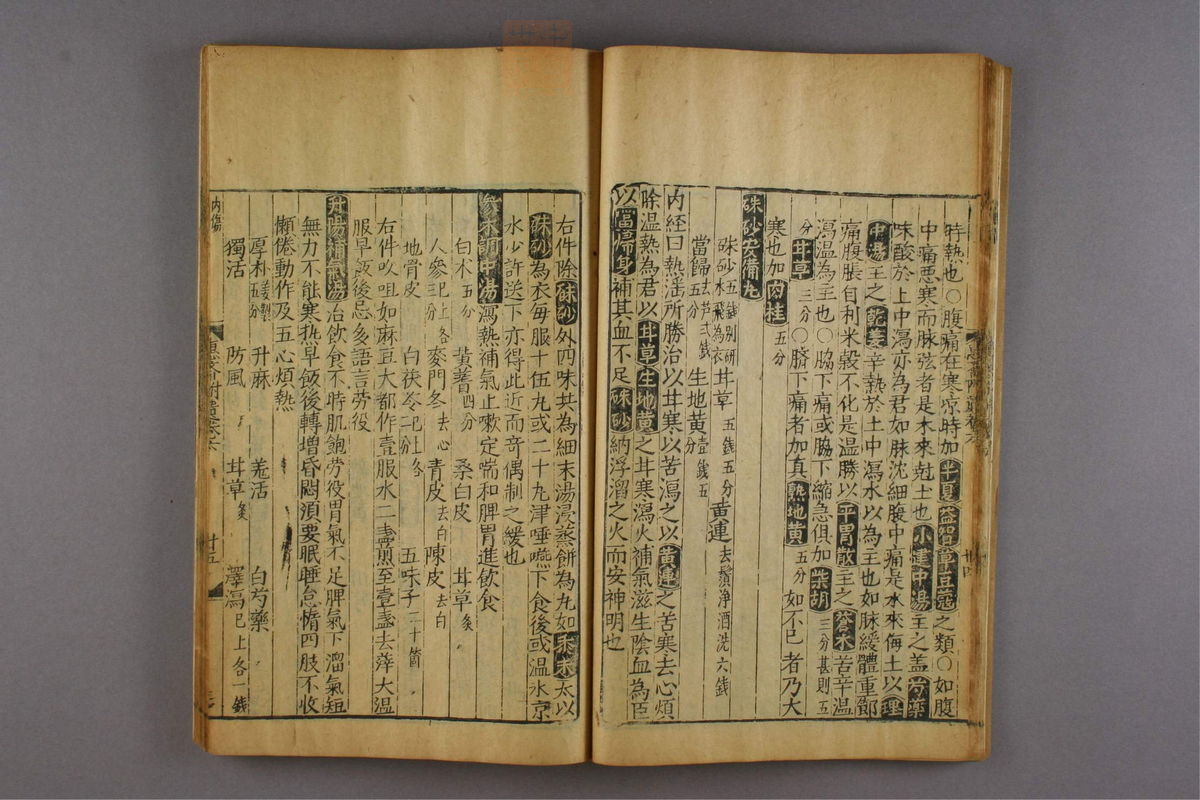 時熱也○腹痛在寒凉時加半夏益智草豆蔻之類○如腹
中痛惡寒而脉弦者是木來尅土也小建中湯主之盖芍藥
味酸於土中瀉木為君如脉沈細腹中痛是水來侮土以理
中湯主之乾姜辛熱於土中瀉水以為主也如脉緩體重節
痛腹脹自利米穀不化是温勝以平胃散主之蒼朮苦辛温
瀉温為主也○脇下痛或脇下縮急俱加柴胡三分甚則五
分甘草三分○臍下痛者加真熟地黄五分如不已者乃大
寒也加肉桂五分
硃砂安神丸
硃砂五錢别研水飛為衣 甘草五錢五分 黄連去鬚净酒洗六錢
當歸去芦弍錢五分 生地黄壹錢五分
内经曰熱滛所勝治以甘寒以苦瀉之以黄連之苦寒去心煩
除温熱為君以甘草生地黄之甘寒瀉火補氣滋生陰血為臣
以當歸身補其血不足硃砂納浮溜之火而安神明也
右件除硃砂外四味共為細末湯浸蒸餅為丸如黍米太以
硃砂為衣每服十伍丸或二十丸津唾嚥下食後或温水凉
水少許送下亦得此近而奇偶制之緩也
參朮調中湯瀉熱補氣止嗽定喘和脾胃進飲食
白朮五分 黄蓍四分 桑白皮 甘草炙
人參已上各三分 麥門冬去心 青皮去白 陳皮去白
地骨皮 白茯苓已上各二分 五味子二十箇
右件㕮咀如麻豆大都作壹服水二盞煎至壹盞去滓大温
服早飯後忌多語言劳役
升陽補氣湯治飲食不時肌飽劳役胃氣不足脾氣下溜氣短
無力不能寒热早飯後轉增昏悶湏要眠睡怠惰四肢不收
懶倦動作及五心煩熱
厚朴五分姜製 升麻 羗活 白芍藥
獨活 防風 甘草炙 澤瀉已上各一錢
内傷
十五
廿四